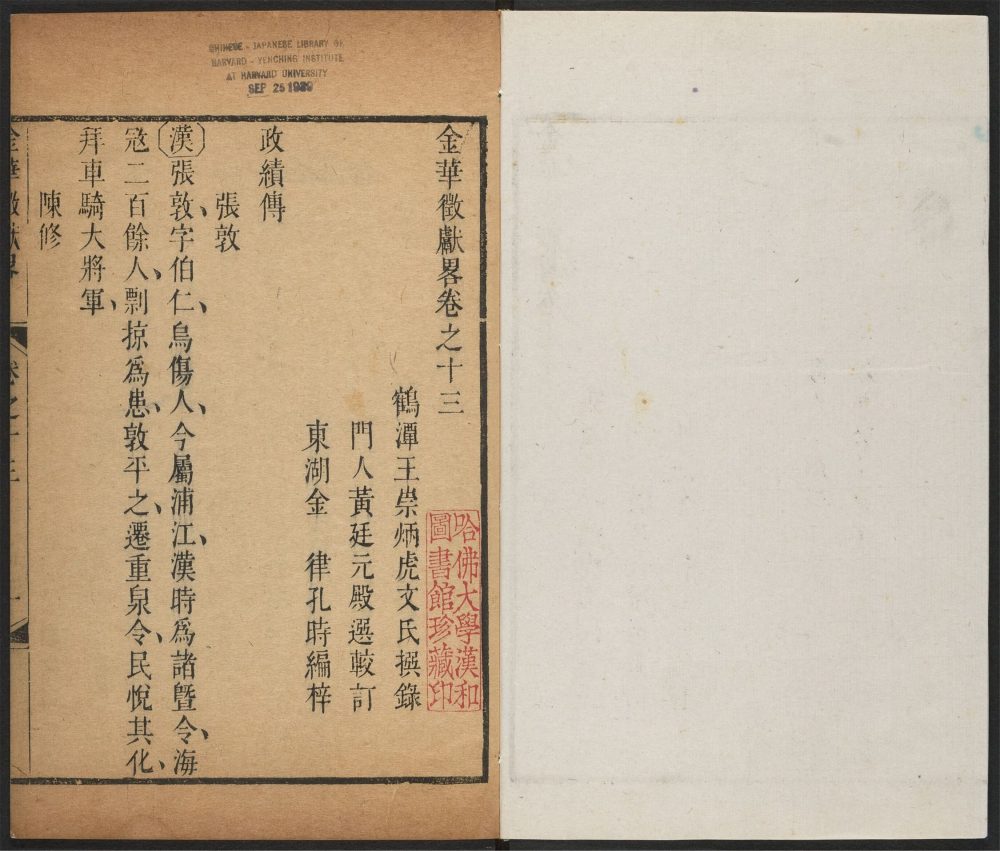 CHINESE - JAPANESE LIBRARY OF
HARVARD - YENCHING INSTITUTE
AT HARVARD UNIVERSITY
SEP 25 1939
金華徵獻畧卷之十三
哈佛大學漢和
圖書館珍藏印
鶴潭王崇炳虎文氏撰錄
門人黃廷元殿選較訂
東湖金　律孔時編梓
政績傳
張敦
漢張敦、字伯仁、烏傷人、今屬浦江、漢時爲諸曁令、海
宼二百餘人、剽掠爲患、敦平之、遷重泉令、民悅其化、
拜車騎大將軍、
陳修
金華徵獻畧　卷之十三　一